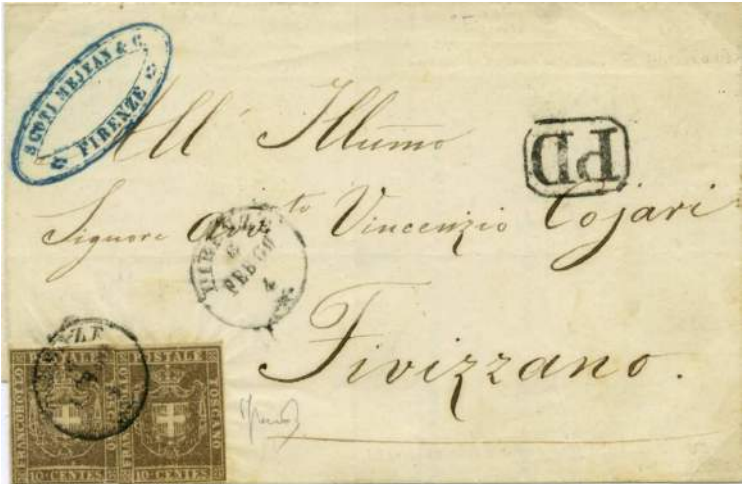 SCOTI MEJEAN & C.
FIRENZE
All' Illumo
PD
Signore Avvto Vincenzio Cojari
FIRENZE
6
FEB 60
4
Fivizzano.
FRANCOBOLLO POSTALE TOSCANO
10 CENTES
FRANCOBOLLO POSTALE TOSCANO
10 CENTES